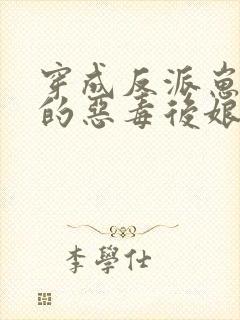 穿成反派崽
的惡毒後娘
李學仕